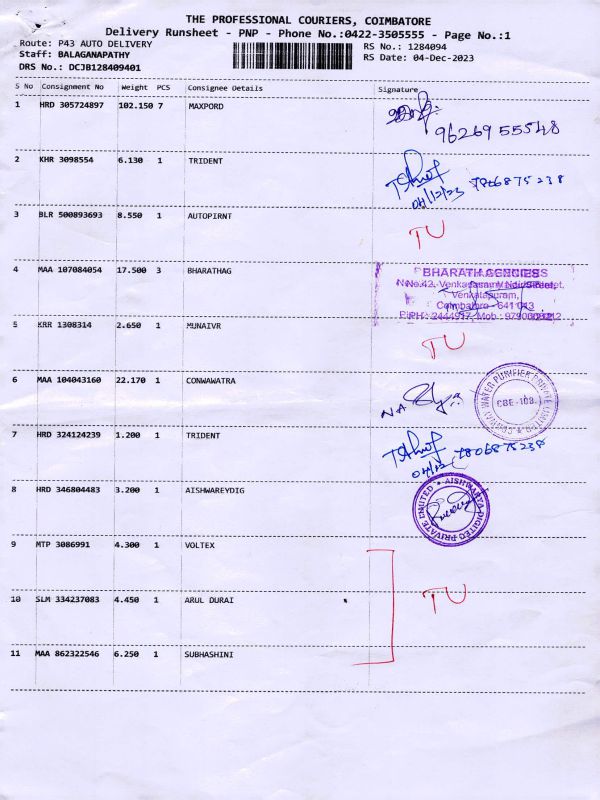 THE PROFESSIONAL COURIERS, COIMBATORE
Delivery Runsheet - PNP - Phone No.:0422-3505555 - Page No.:1
Route: P43 AUTO DELIVERY
RS No.: 1284094
Staff: BALAGANAPATHY
RS Date: 04-Dec-2023
DRS No.: DCJB128409401
S No Consignment No Weight PCS Consignee Details Signature
1 HRD 305724897 102.150 7 MAXPORD
9626955548
2 KHR 3098554 6.130 1 TRIDENT
04/12/23 7806875238
3 BLR 500893693 8.550 1 AUTOPIRNT TU
4 MAA 107084054 17.500 3 BHARATHAG
BHARATH AGENCIES
Venkatapuram,
Coimbatore - 641 043
5 KRR 1308314 2.650 1 MUNAIVR TU
6 MAA 104043160 22.170 1 CONWAWATRA
WATER PURIFIER PRIVATE LIMITED
CBE-108.
7 HRD 324124239 1.200 1 TRIDENT
04/12 7806875238
8 HRD 346804483 3.200 1 AISHWAREYDIG
AISHWARYA DIGITEC PRIVATE LIMITED
9 MTP 3086991 4.300 1 VOLTEX
10 SLM 334237083 4.450 1 ARUL DURAI TU
11 MAA 862322546 6.250 1 SUBHASHINI